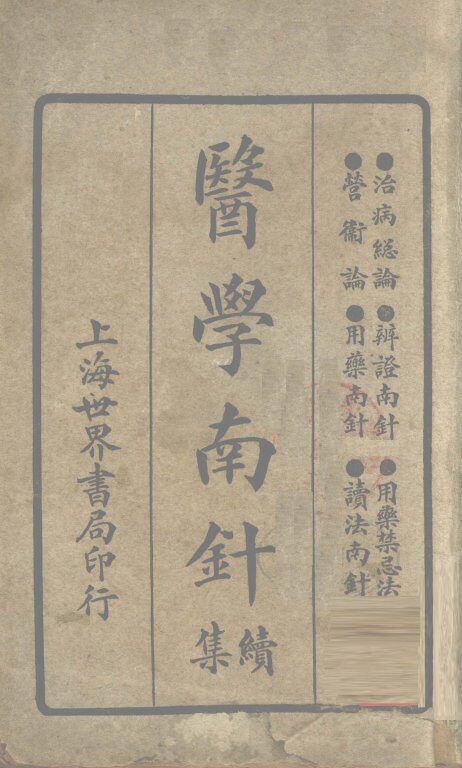 ●治病總論●辨證南針●用藥禁忌法
●營衞論●用藥南針●讀法南針
醫學南針
續集
上海世界書局印行